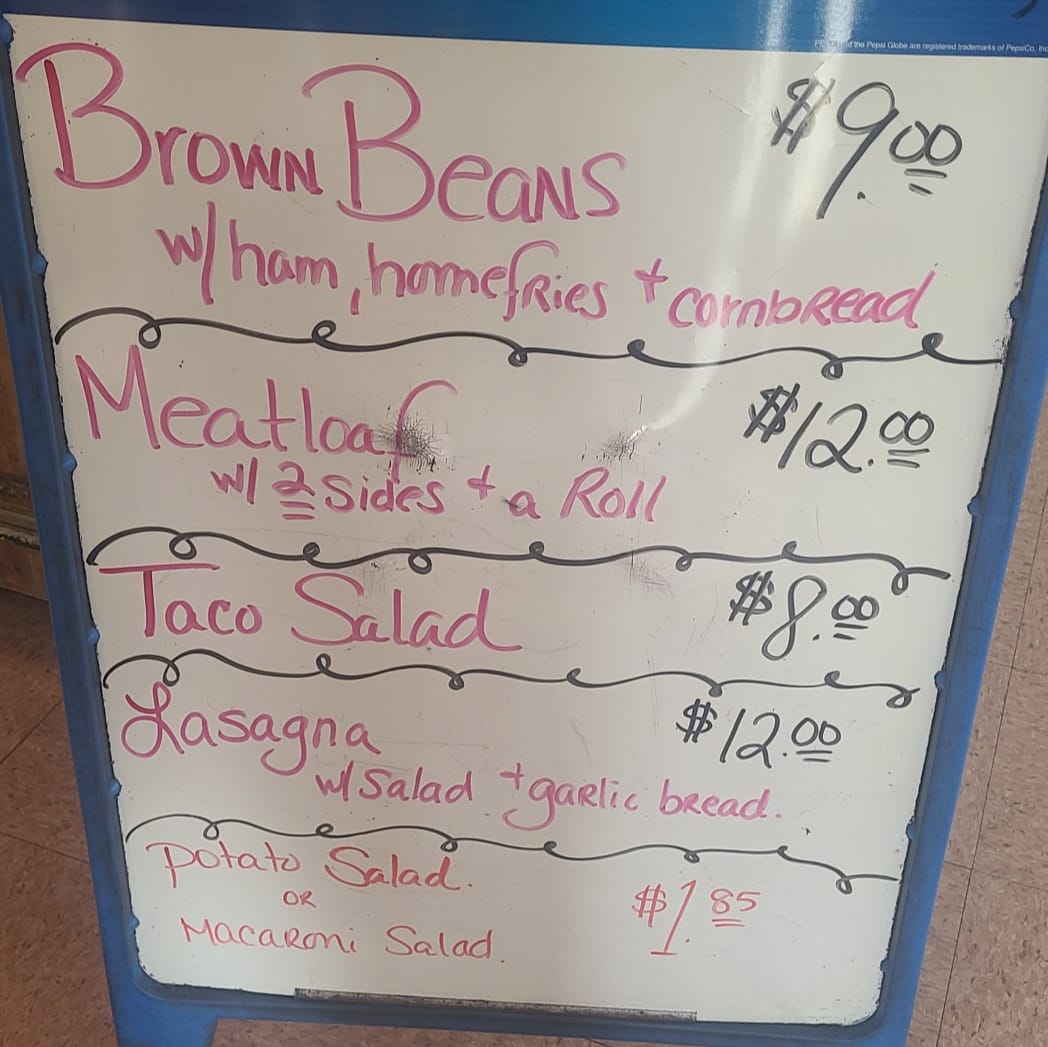 the Pepsi Globe are registered trademarks of PepsiCo, Inc
Brown Beans $9.00
w/ ham, homefries + cornbread
Meatloaf $12.00
w/ 2 sides + a Roll
Taco Salad $8.00
Lasagna $12.00
w/ Salad + garlic bread.
potato Salad.
OR $1.85
Macaroni Salad.